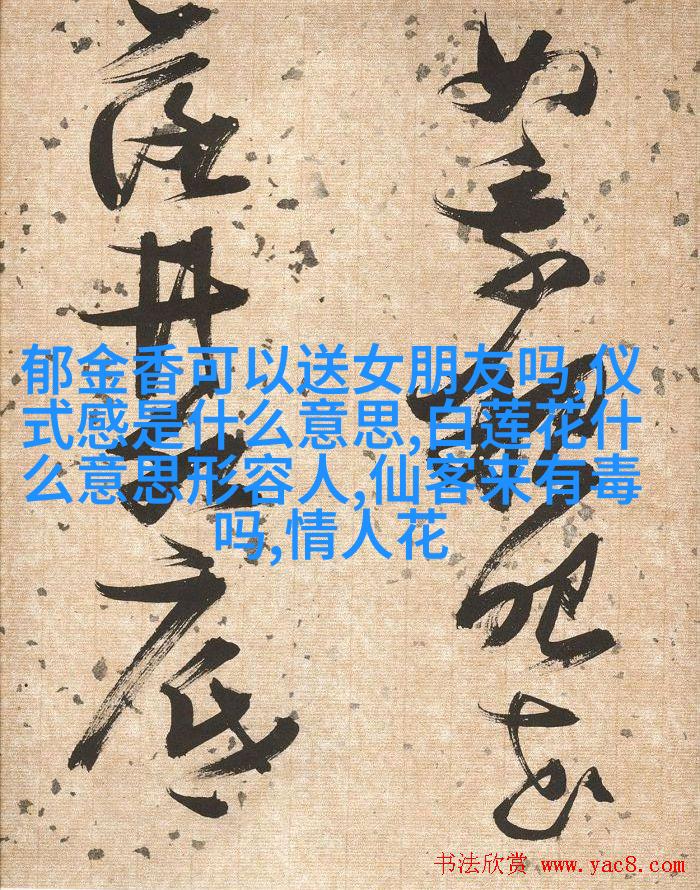 如
井 底
郁金香可以送女朋友吗,仪
式感是什么意思,白莲花什
么意思形容人,仙客来有毒
吗,情人花
书法欣赏 www.yac8.com